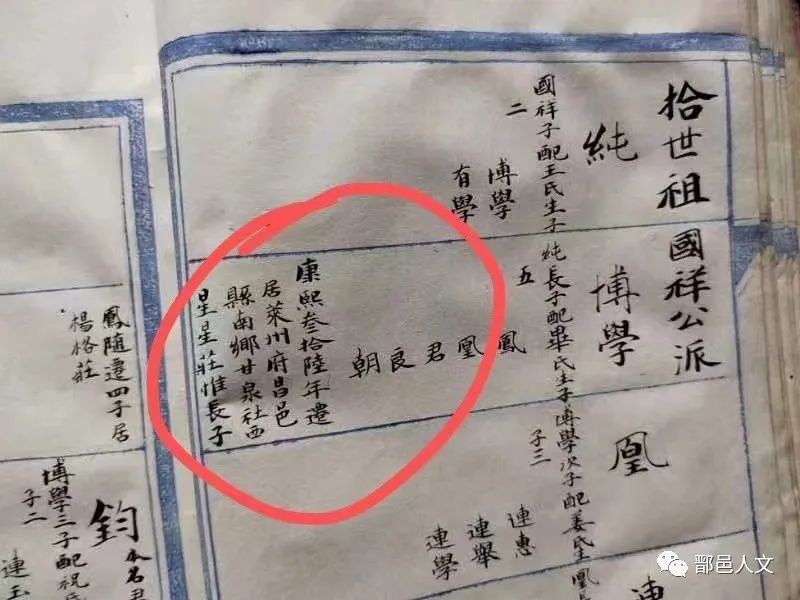 拾世祖 國祥公派
純
國祥子配王氏生子
二
博學
有學
博學
純長子配畢氏生子
五
鳳
凰
君
良
朝
康熙叁拾陸年遷
居萊州府昌邑
縣南鄉甘泉社西
星星莊惟長子
鳳隨遷四子居
楊格莊
凰
博學次子配姜氏生
子三
連惠
連舉
連學
鈞
本名君
博學三子配祝氏
子二
連玉
凰長
連
鄑邑人文